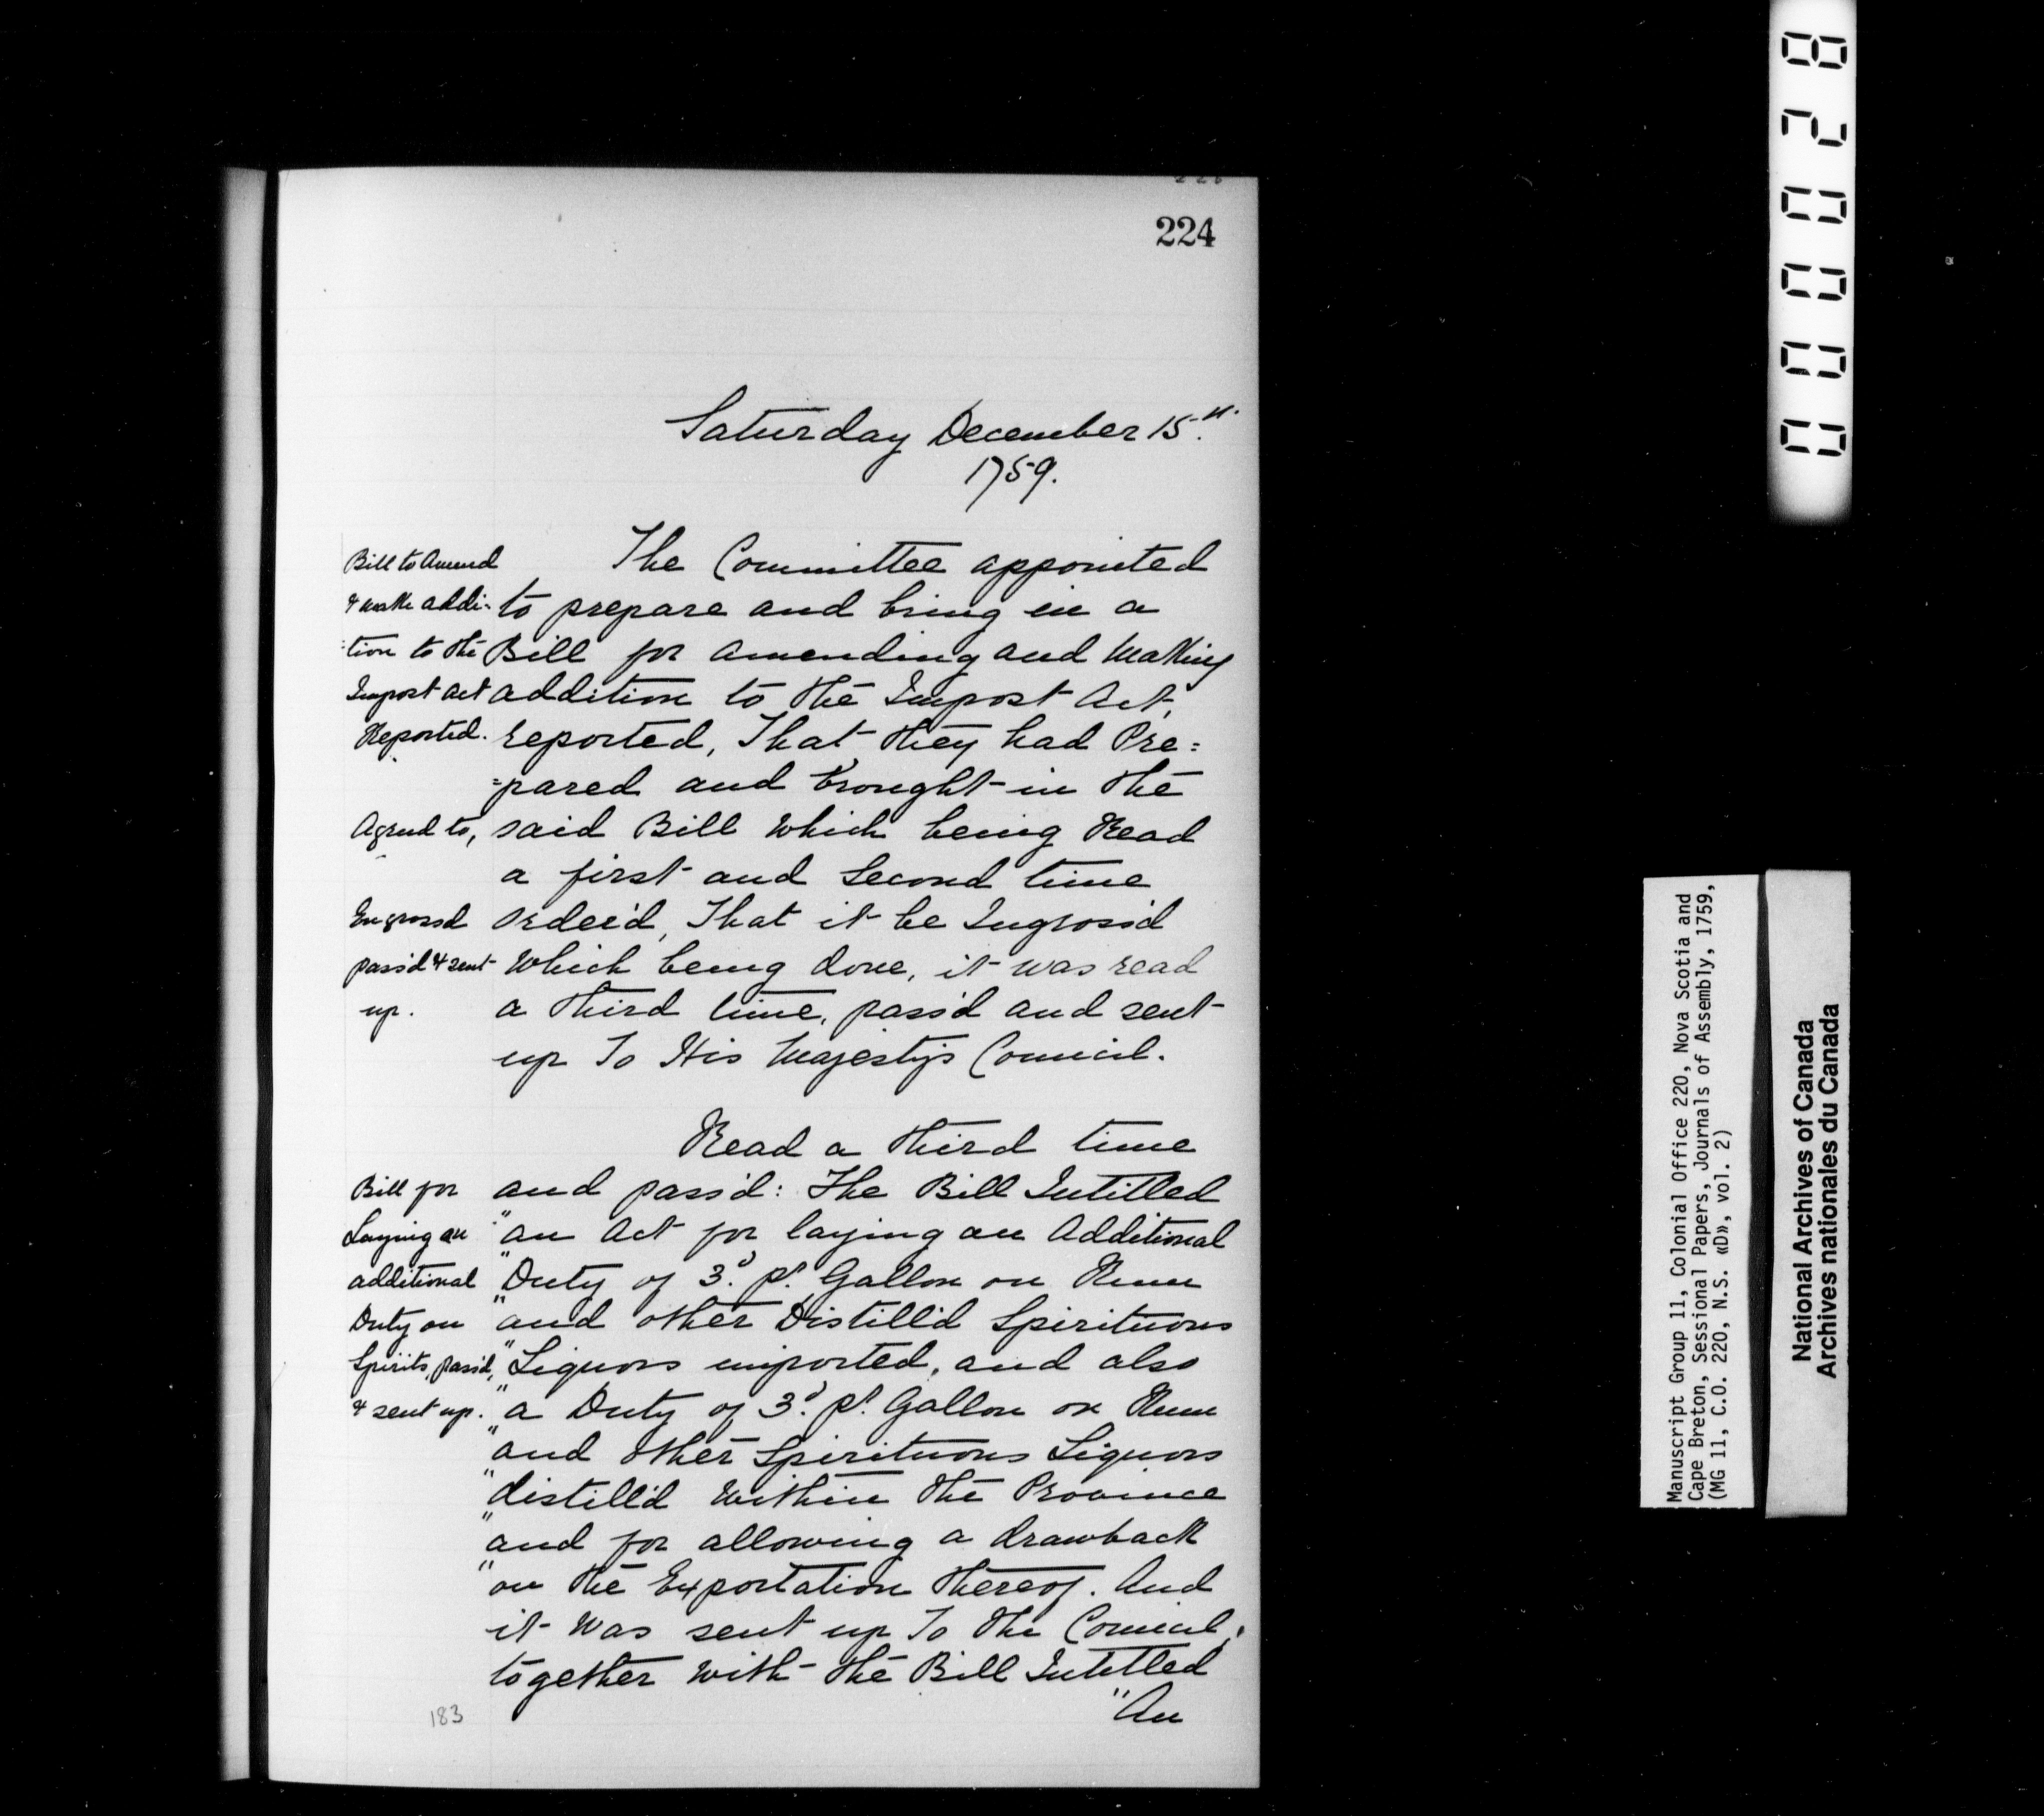 224
Saturday December 15.th
1759.
Bill to Amend
& make addi-
:tion to the
Impost Act
Reported.
Agreed to,
Engross'd
pass'd & sent
up.
The Committee appointed
to prepare and bring in a
Bill for amending and Making
addition to the Impost Act,
reported, That they had Pre=
=pared and brought in the
said Bill which being Read
a first and Second time
Order'd, That it be Ingross'd
Which being done, it was read
a third time, pass'd and sent
up To His Majesty's Council.
Bill for
Laying an
additional
Duty on
Spirits, pass'd,
& sent up.
Read a third time
and pass'd: The Bill Intitled
"an Act for laying an Additional
"Duty of 3.d pr. Gallon on Rum
"and other Distill'd Spirituous
"Liquors imported, and also
"a Duty of 3.d pr. Gallon on Rum
"and other Spirituous Liquors
"distill'd within the Province
"and for allowing a drawback
"on the Exportation thereof. And
it was sent up To the Council,
together with the Bill Intitled
"An
183
00028
Manuscript Group 11, Colonial Office 220, Nova Scotia and
Cape Breton, Sessional Papers, Journals of Assembly, 1759,
(MG 11, C.O. 220, N.S. «D», vol. 2)
National Archives of Canada
Archives nationales du Canada